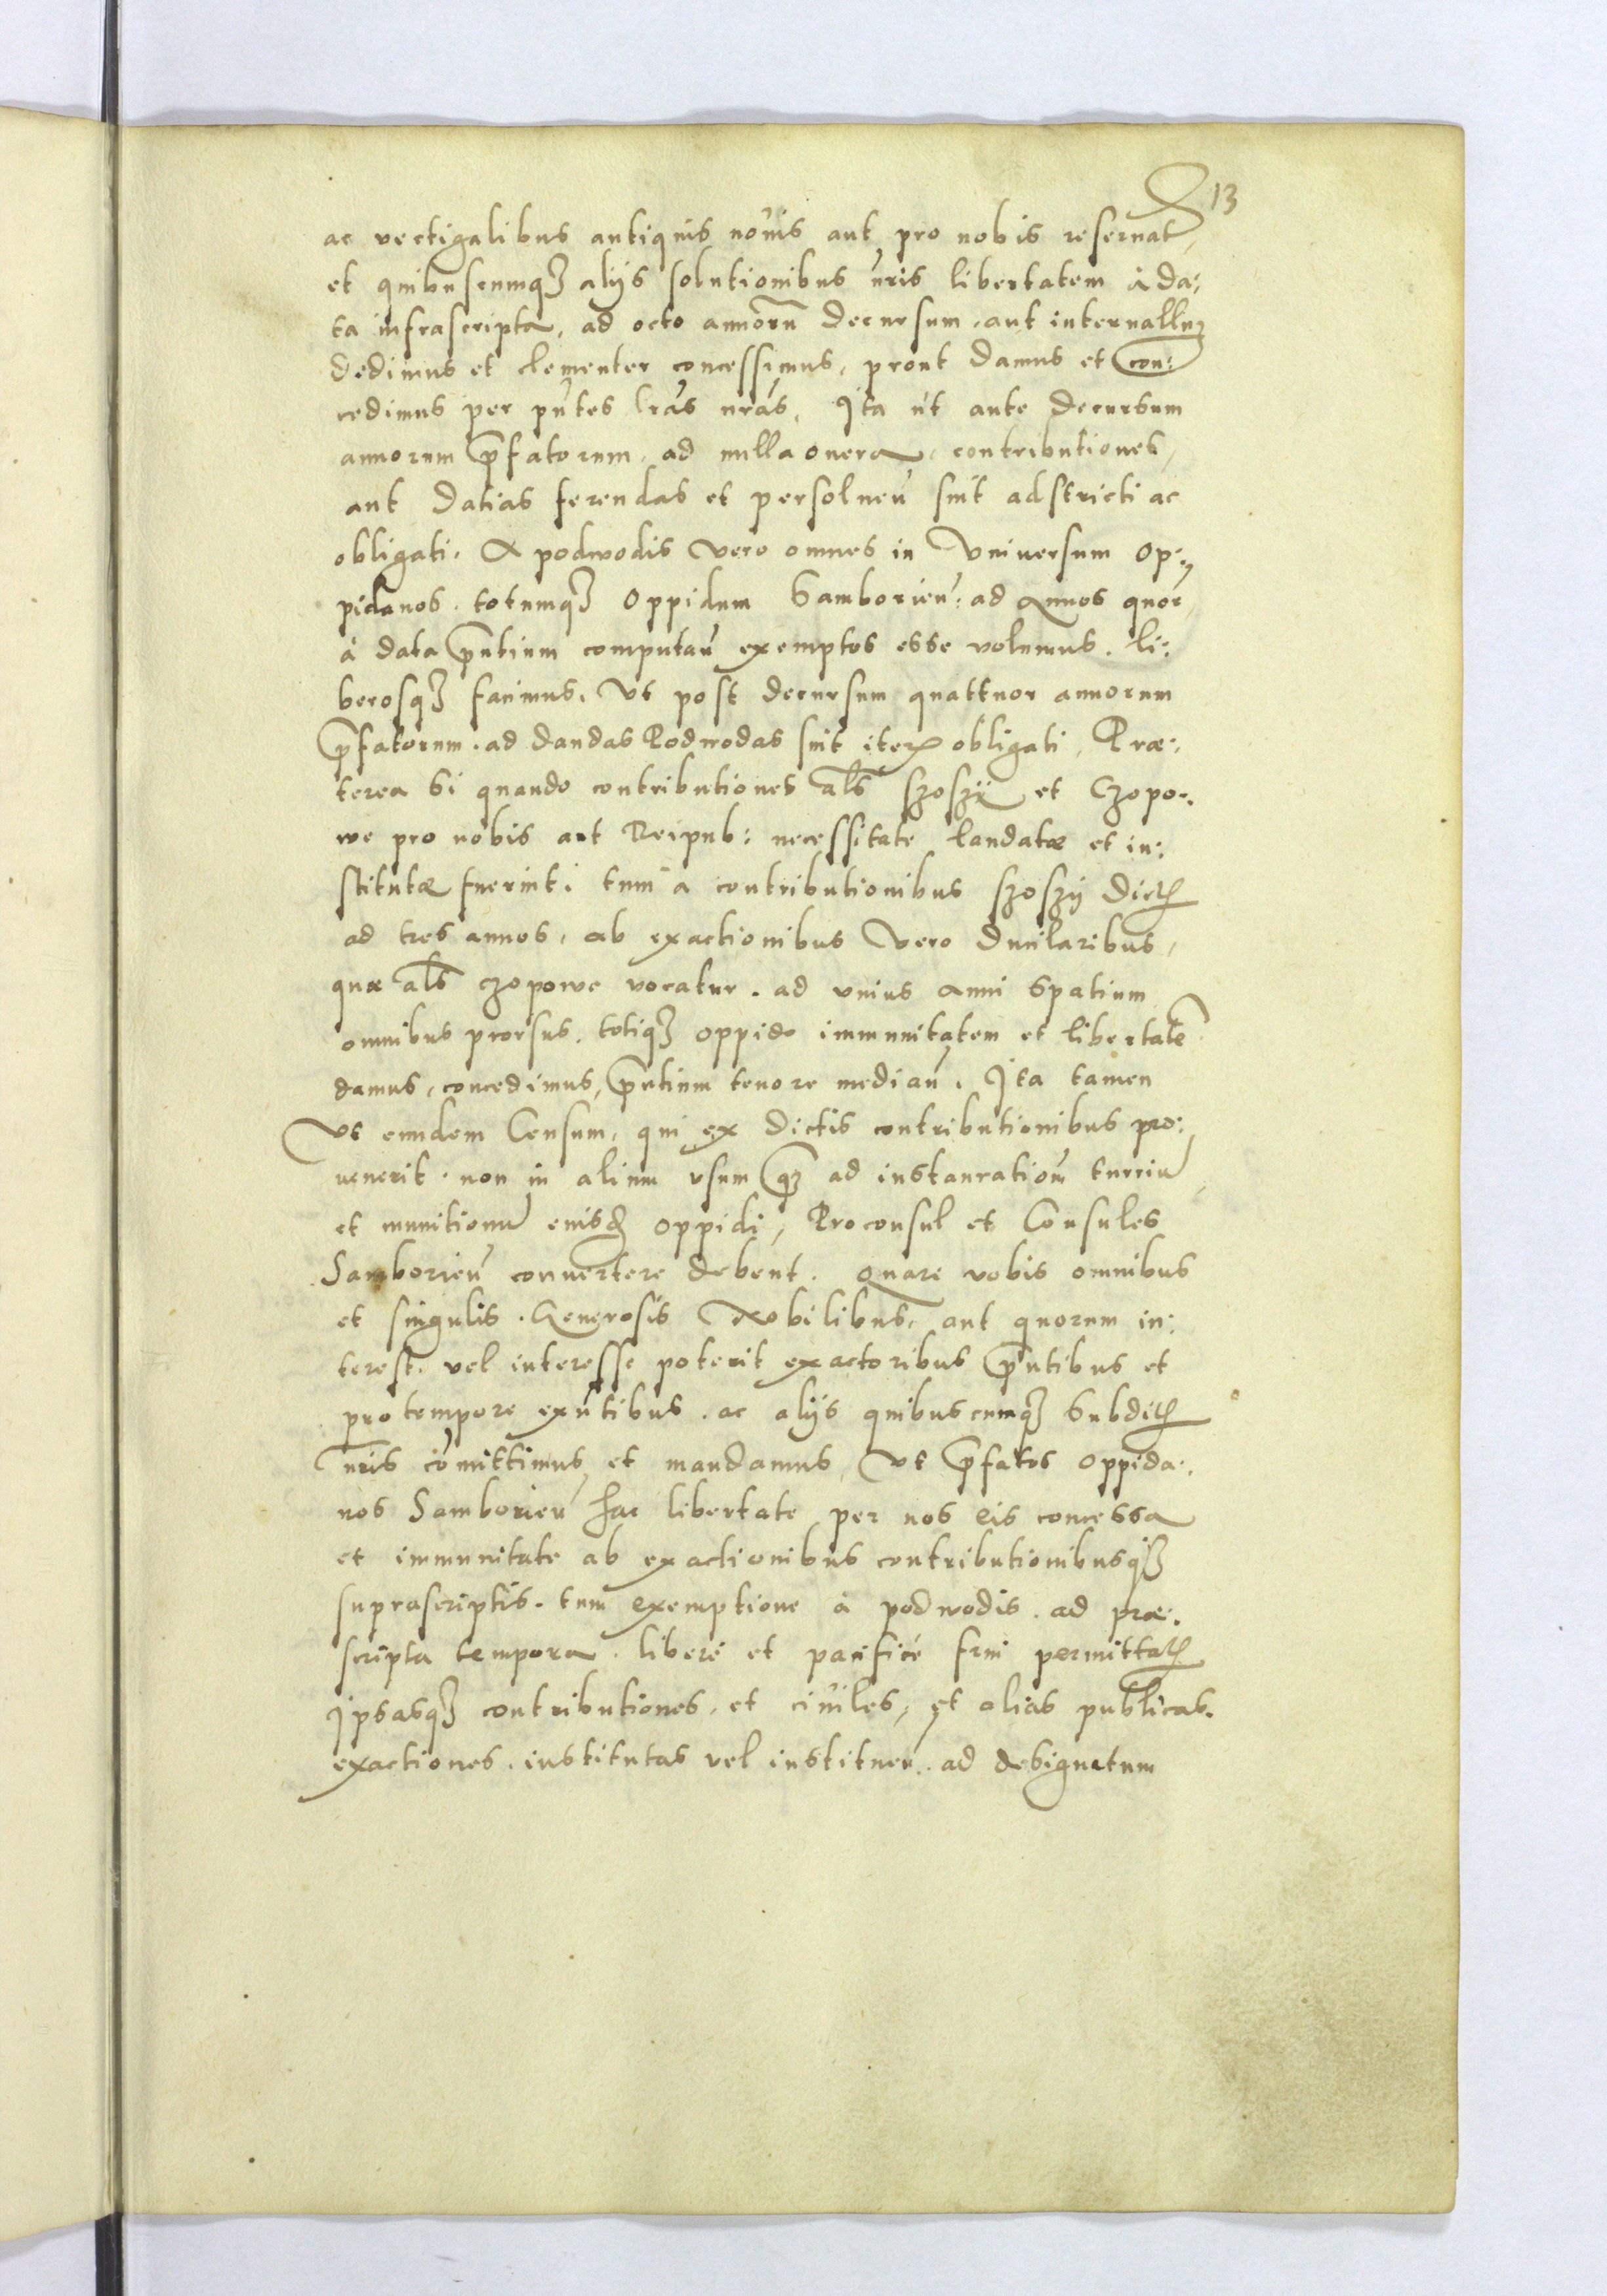 13
ac vectigalibus antiquis nouis aut pro nobis reseruat,
et quibuscumqȝ alijs solutionibus n̄ris libertatem à da:
ta infrascripta, ad octo annorū decursum, aut interuallūȝ
dedimus et clementer concessimus, prout damus et con:
cedimus per pn̄tes l̄ras n̄ras, Ita ut ante decursum
annorum p̄fatorum, ad nulla onera, contributiones,
aut datias ferendas et persoluen̄ sint adstricti ac
obligati. A podwodis vero omnes in vniuersum op:
pidanos. totumqȝ oppidum Samborien̄: ad annos quor̄
à data p̄ntium computan̄ exemptos esse volumus. li:
berosqȝ facimus. Vt post decursum quattuor annorum
p̄fatorum. ad dandas Podwodas sint iterꝫ obligati. Præ:
terea Si quando contributiones al̄s szoszÿ et Czopo:
we pro nobis aut Reipub: necessitate laudatæ et in:
stitutæ fuerint: tum a contributionibus szoszÿ dictꝭ
ad tres annos, ab exactionibus vero Ducilaribus,
quæ al̄s czopowe vocatur. ad vnius anni spatium
omnibus prorsus. totiqȝ oppido immunitatem et libertatē
damus, concedimus, p̄ntium tenore median̄. Ita tamen
Vt eundem Censum, qui ex dictis contributionibus pro:
uenerit. non in alium vsum qȝ̄ ad instauration̄ turriū
et munitionū eiusd̄ oppidi, Proconsul et Consules
Samborien̄ conuertere debent. Quare vobis omnibus
et singulis. Generosis Nobilibus, aut quorum in:
terest. vel interesse poterit exactoribus p̄ntibus et
pro tempore exn̄tibus. ac alijs quibuscumqȝ Subditꝭ
n̄ris com̄ittimus et mandamus, Vt p̄fatos oppida:
nos Samborien̄ hac libertate per nos eis concessa
et immunitate ab exactionibus contributionibusqȝ
suprascriptis. tum exemptione à podwodis. ad præ:
scripta tempora. liberè et pacificè frui permittatꝭ
Ipsasqȝ contributiones, et ciuiles, et alias publicas.
exactiones. institutas vel instituen̄. ad designatum